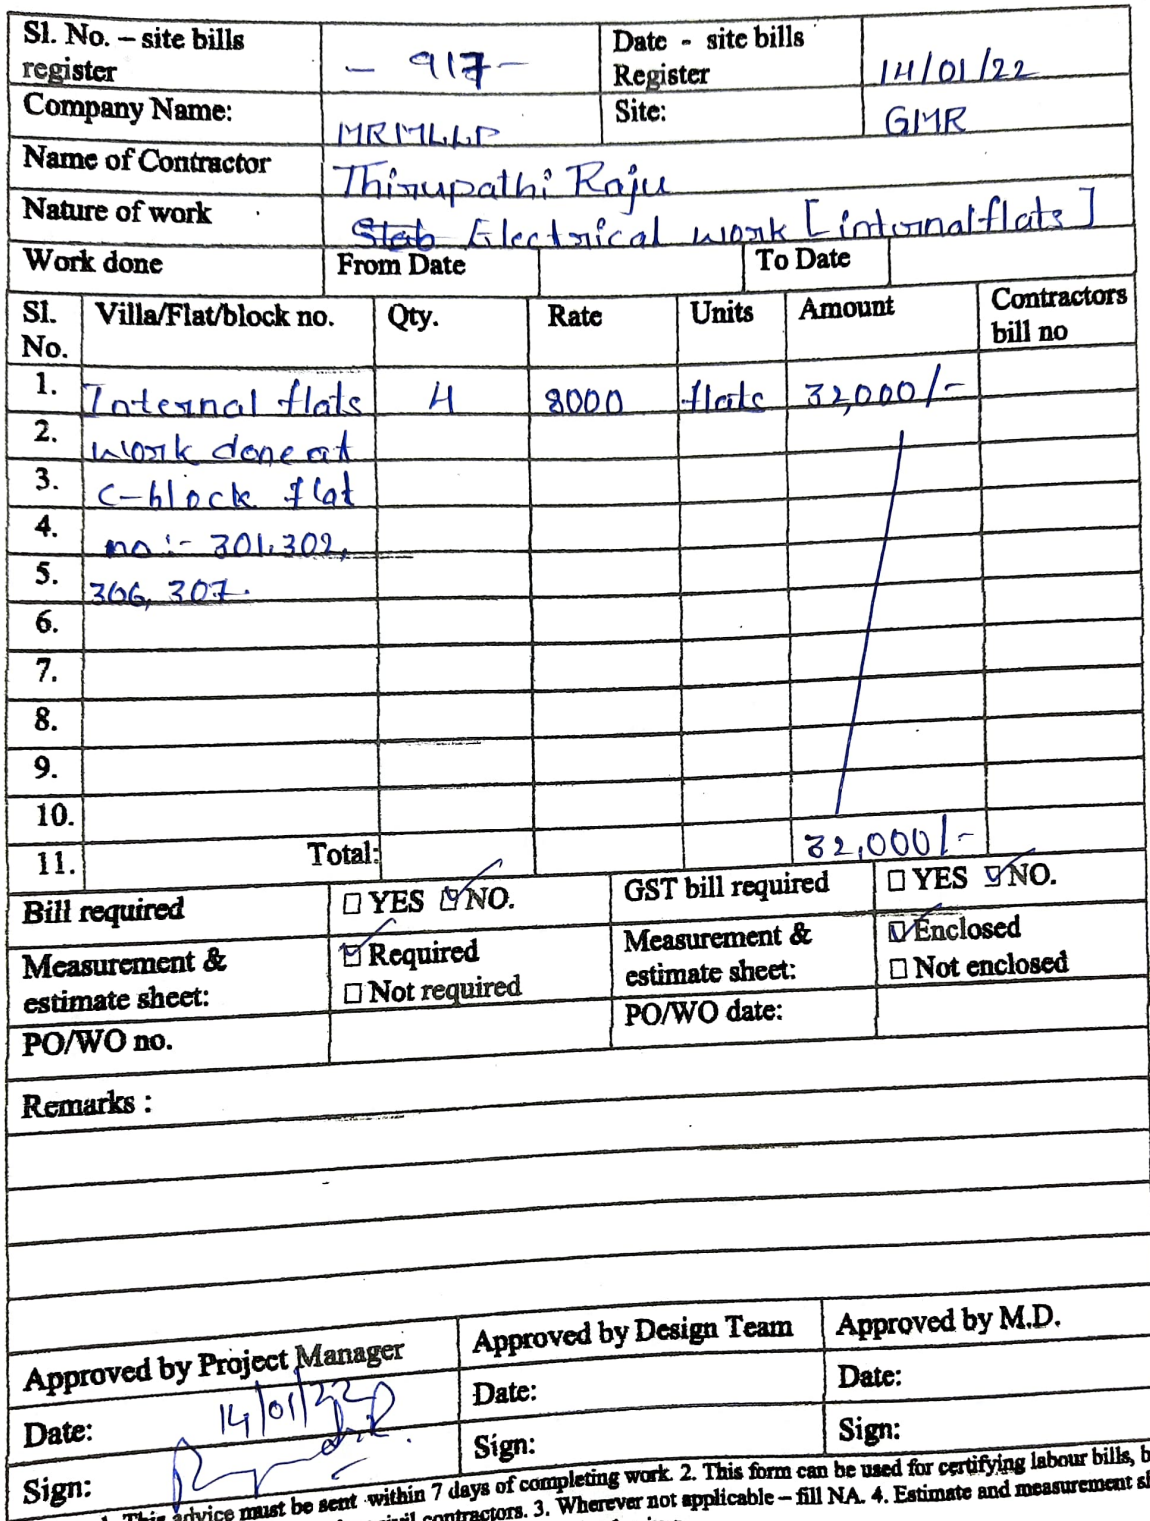 Sl. No. – site bills register - 917- Date - site bills Register 14/01/22
Company Name: MRMLLP Site: GMR
Name of Contractor Thirupathi Raju
Nature of work Slab Electrical work [internal flats]
Work done From Date To Date
Sl. No. Villa/Flat/block no. Qty. Rate Units Amount Contractors bill no
1. Internal flats 4 8000 flats 32,000/-
2. work done at
3. C-block flat
4. no :- 301,302,
5. 306, 307.
6.
7.
8.
9.
10.
11. Total: 32,000/-
Bill required ☐ YES ☑ NO. GST bill required ☐ YES ☑ NO.
Measurement & estimate sheet: ☑ Required ☐ Not required Measurement & estimate sheet: ☑ Enclosed ☐ Not enclosed
PO/WO no. PO/WO date:
Remarks :
Approved by Project Manager Approved by Design Team Approved by M.D.
Date: 14/01/22 Date: Date:
Sign: Sign: Sign:
1. This advice must be sent within 7 days of completing work. 2. This form can be used for certifying labour bills, b
civil contractors. 3. Wherever not applicable – fill NA. 4. Estimate and measurement sh